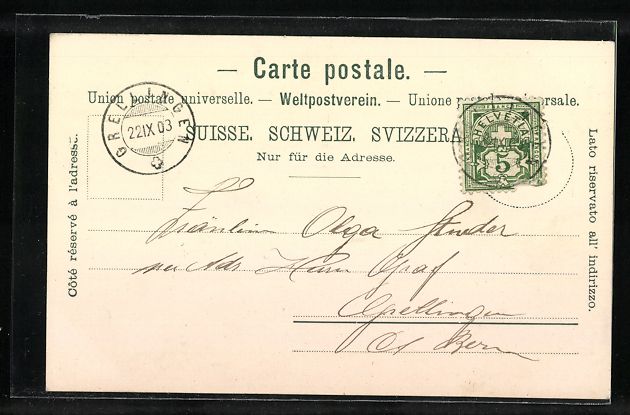 — Carte postale. —
Union postale universelle. — Weltpostverein. — Unione postale universale.
SUISSE. SCHWEIZ. SVIZZERA
Nur für die Adresse.
GRELLINGEN
22 IX 03
HELVETIA
5
Côté réservé à l'adresse.
Lato riservato all' indirizzo.
Fräulein Olga Studer
per Adr. Herrn Graf
Grellingen
Ct Bern